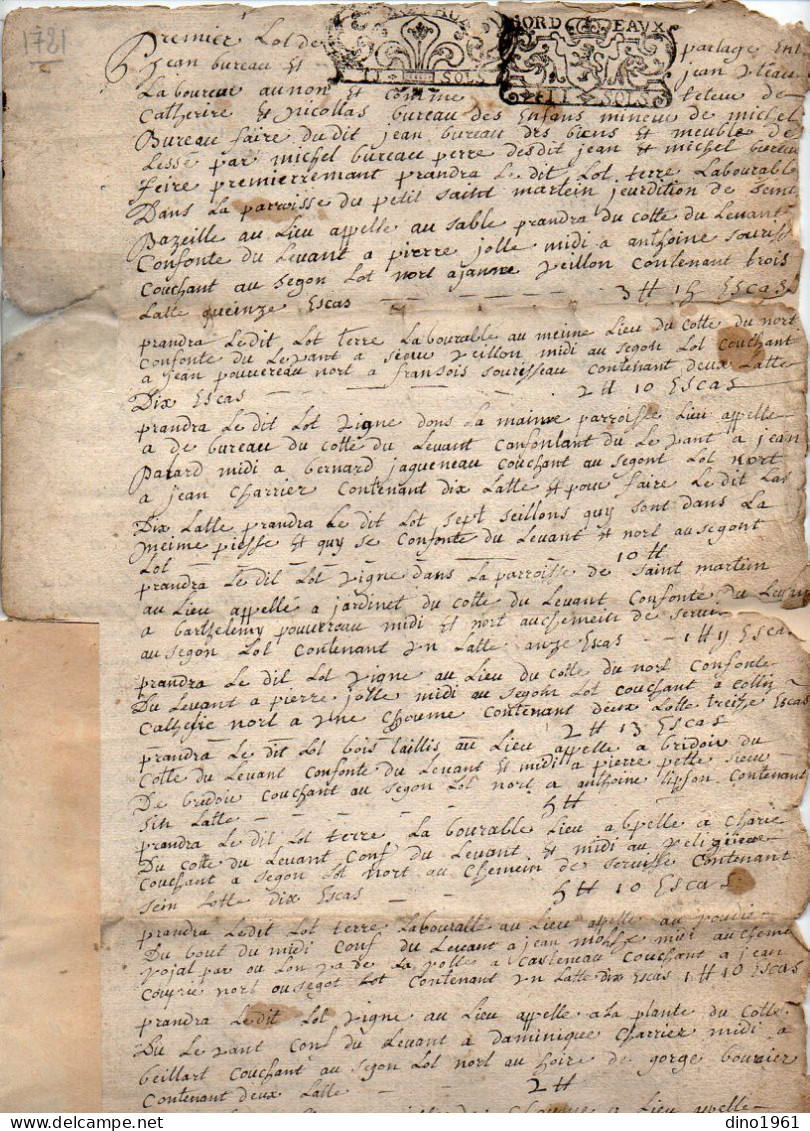 1721
BORDEAUX
II SOLS
II SOLS
Premier Lot de partage Ent
Jean bureau Et jean
Laboureur au non Et comme teteur de
Catherire Et Nicollas bureau des Enfans mineur de michel
Bureau faire du dit jean bureau des biens Et meuble de
Lesse par michel bureau perre des dit jean Et michel bureau
feire premierremant prandra Le dit Lot terre Labourable
Dans La parroisse du petit saint martein jeurdition de seint
Bazeille au Lieu appelle au sable prandra du cotte du Levant
Confonte du Levant a pierre jolle midi a anthoine souriss
Couchant au segon Lot nort a janne veillon Contenant trois
Latte queinze Escas 3 # 15 Escas
prandra Le dit Lot terre Labourable au meime Lieu du cotte du nort
Confonte du Levant a veillon midi au segon Lot Couchant
a jean pouvereau nort a fransois sourisseau Contenant deux Latte
Dix Escas 2 # 10 Escas
prandra Le dit Lot vigne dons La maime parroisse Lieu appelle
a de bureau du cotte du Levant Confontant du Levant a jean
Batard midi a bernard jagueneau Couchant au segont Lot nort
a jean Charrier Contenant dix Latte Et pour faire Le dit Las
Dix Latte prandra Le dit Lot sept seillons quy sont dans La
meime piesse Et quy se Confonte du Levant Et nort au segont
Lot 10 #
prandra Le dit Lot vigne dans La parroisse de saint martein
au Lieu appelle a jardinet du cotte du Levant Confonte du Levan
a barthelemy pouverau midi Et nort au chemein de servi
au segon Lot Contenant vn Latte onze Escas 1 # 11 Esca
prandra Le dit Lot vigne au Lieu du cotte du nort Confonte
Du Levant a pierre jolle midi au segon Lot Couchant a Collin
Catherie nort a vne Choume Contenant deux Lotte treisse Escas
2 # 13 Escas
prandra Le dit Lot bois taillis au Lieu appelle a bridoir du
Cotte du Levant Confonte du Levant Et midi a pierre petle sieu
De bridoir Couchant au segon Lot nort a anthoine Contenant
Sin Latte 5 #
prandra Le dit Lot terre La bourable Lieu abpelle a Charie
Du cotte du Levant Conf du Levant Et midi au
Couchant a segon Lot nort au Chemein de servisse Contenant
sein Lotte dix Escas 5 # 10 Escas
prandra Le dit Lot terre Labouralle au Lieu appelle au
Du bout du midi Conf du Levant a jean midi au cheme
Rojal par ou Lon va de La volle a Casteneau Couchant a jean
Couprie nort ou segot Lot Contenant vn Latte dix Escas 1 # 10 Escas
prandra Le dit Lot vigne au Lieu appelle a La plante du Cotte
Du Levant Conf du Levant a Daminique Charrier midi a
beillart Couchant au segon Lot nort au hoire de gorge bourier
Contenant deux Latte 2 #